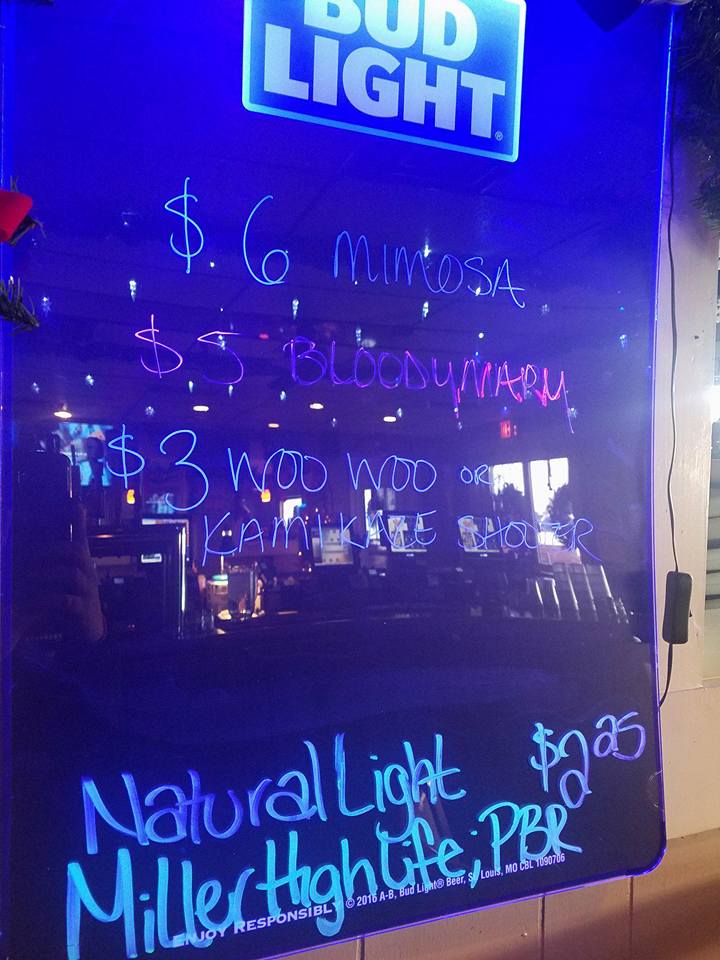 BUD
LIGHT®
$6 MIMOSA
$5 BLOODYMARY
$3 WOO WOO OR
KAMIKAZE SHOOTER
Natural Light $2.25
Miller High Life, PBR
ENJOY RESPONSIBLY © 2016 A-B, Bud Light® Beer, St. Louis, MO CBL 1090706